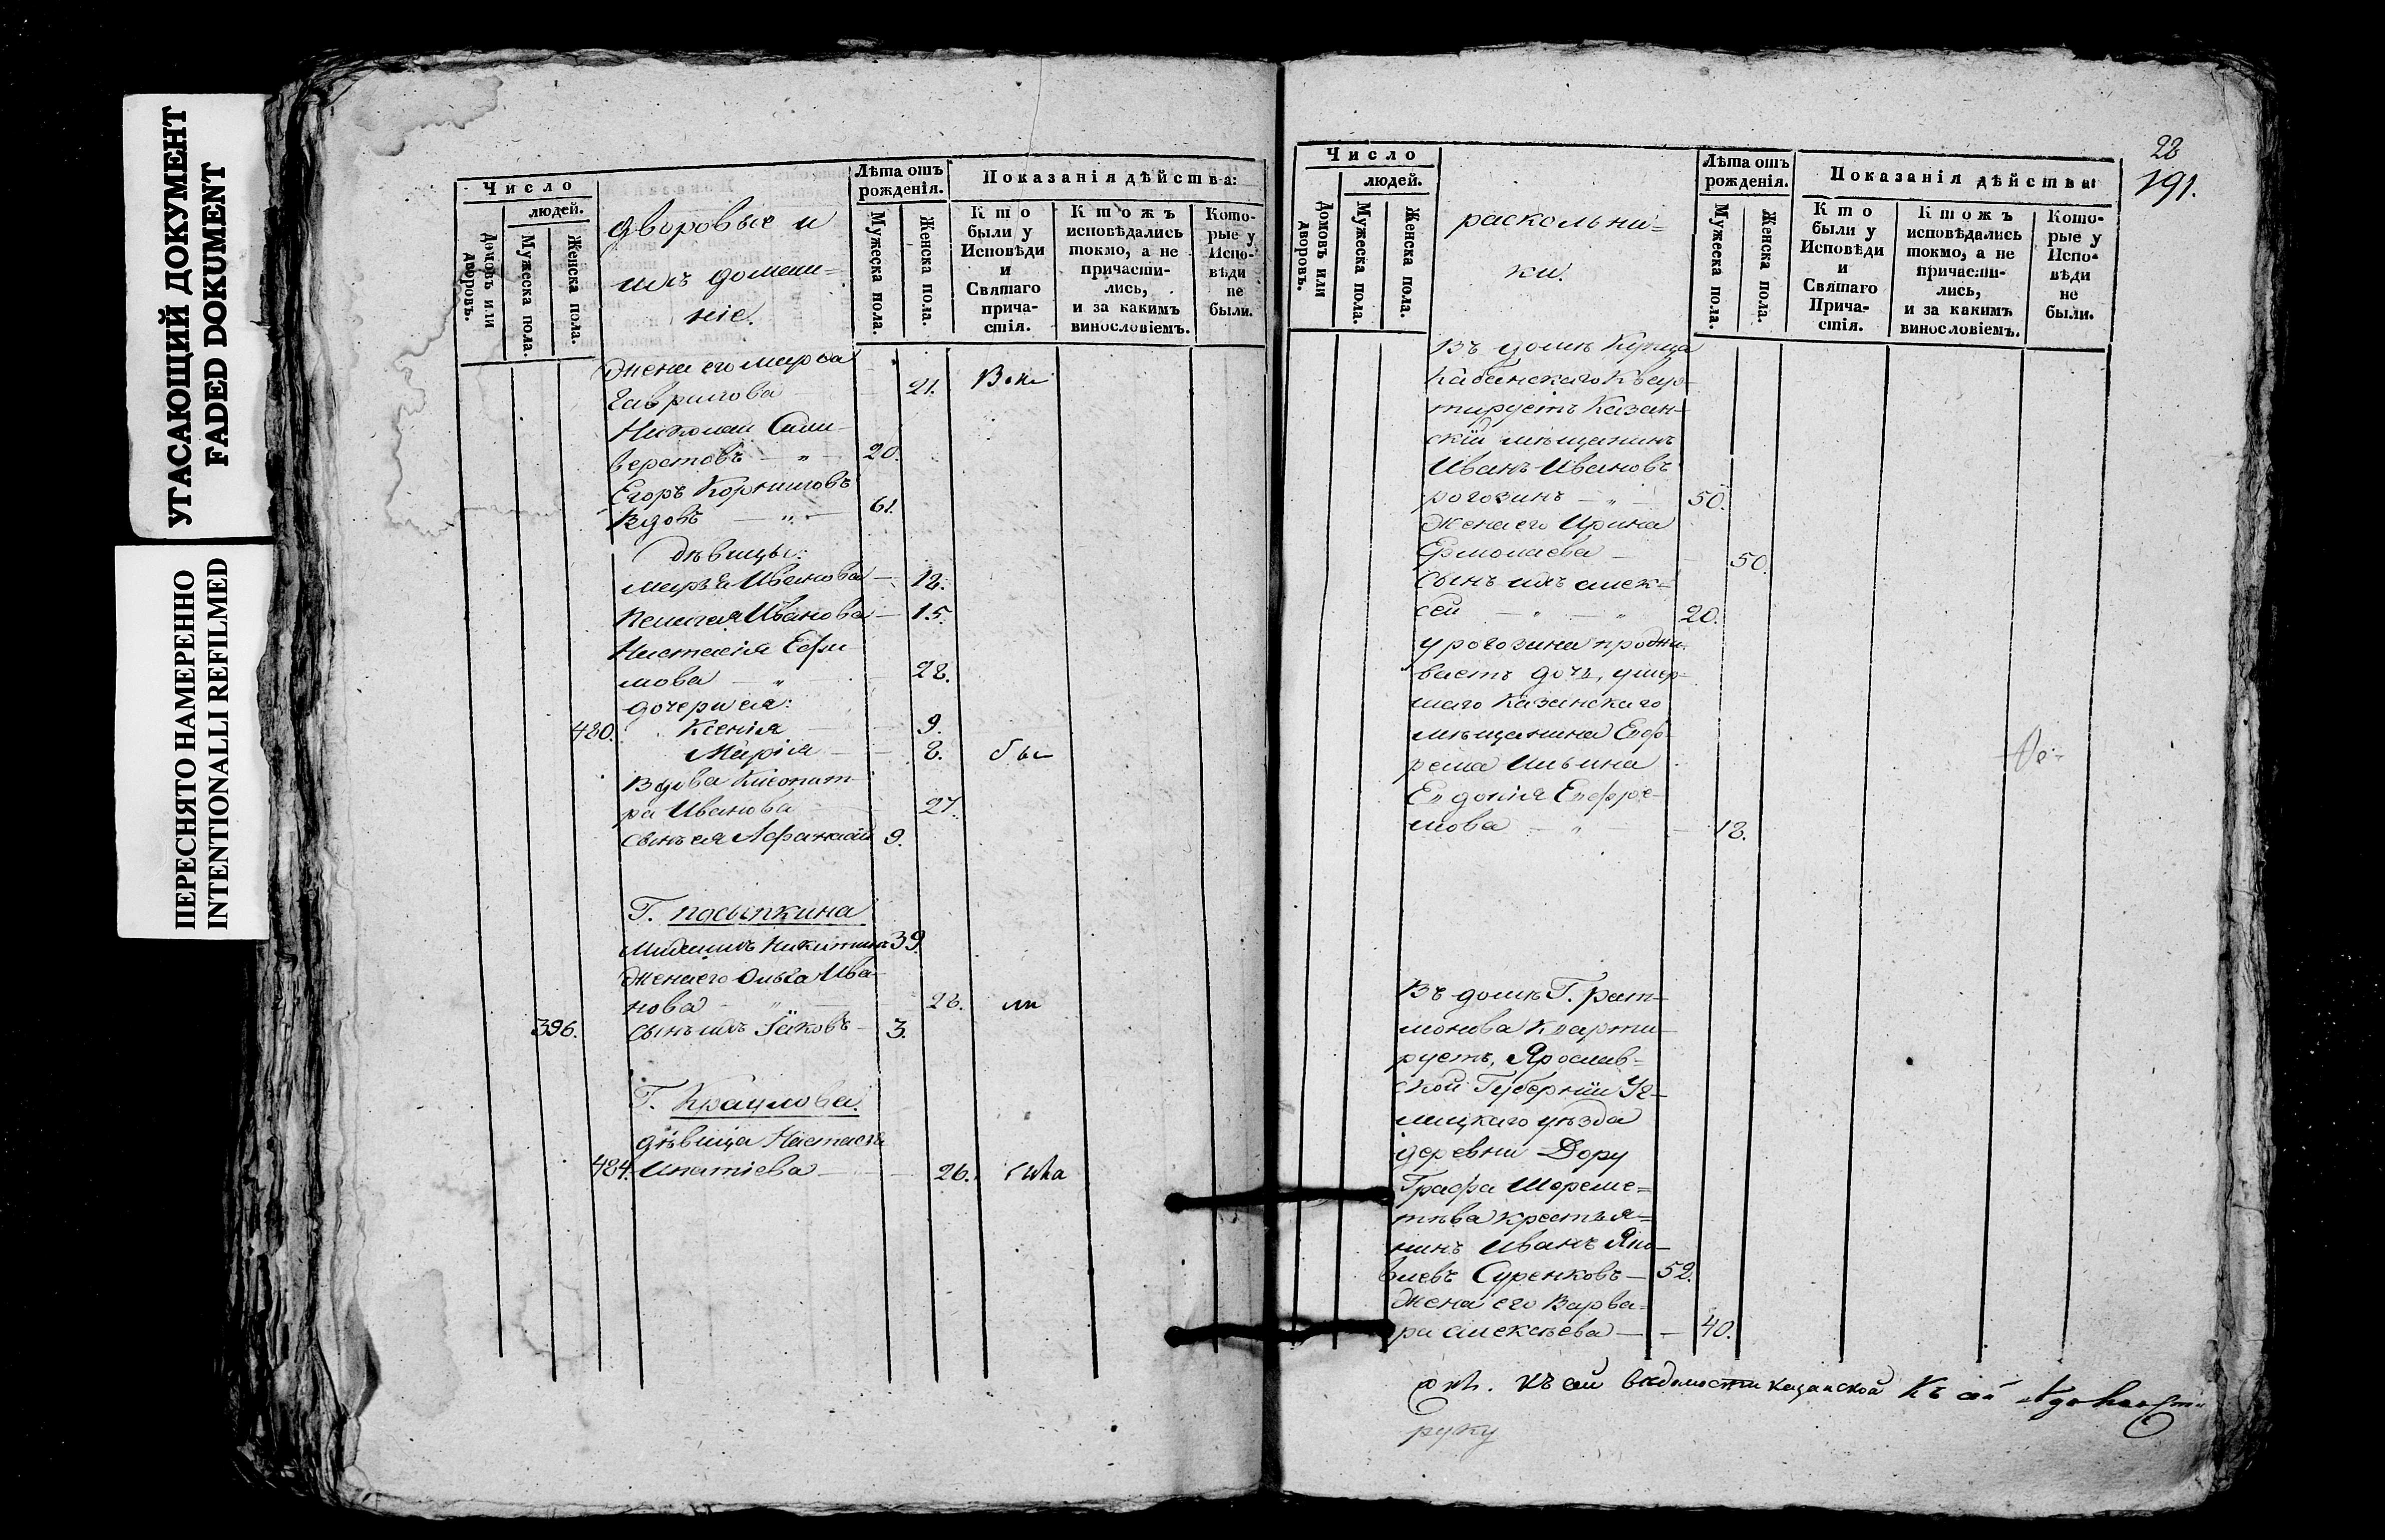 УГАСАЮЩИЙ ДОКУМЕНТ
FADED DOKUMENT
ПЕРЕСНЯТО НАМЕРЕННО
INTENTIONALLI REFILMED
Число
людей.
Домовъ или дворовъ.
Мужеска пола.
Женска пола.
дворовые и
ихъ домаш=
ніе.
Лѣта отъ рожденія.
Мужеска пола.
Женска пола.
Показанія дѣйства:
Кто были у Исповѣди и Святаго причастія.
Ктожъ исповѣдались токмо, а не причастились, и за какимъ винословіемъ.
Которые у Исповѣди не были.
Жена его Марѳа
Гаврилова 21.
Николай Сели-
верстовъ — „ — 20.
Егоръ Корниловъ
Вдовъ — „ — 61.
Дѣвицы:
Марья Иванова — 18.
Пелагея Иванова — 15.
Настасія Ефи
мова — „ 28.
дочери ея:
480. Ксенія 9.
Марія — 8. бы
Вдова Клеопат-
ра Иванова 27.
сынъ ея Афанасій 9.
Г. Посыпкина
Михаилъ Никитинъ 39.
Жена его Ольга Ива-
нова „ — 28. ли
396. сынъ ихъ Іаковъ — 3.
Г. Крацлова.
дѣвица Настасья
484. Ипатіева — 26.
28
191.
Число
людей.
Домовъ или дворовъ.
Мужеска пола.
Женска пола.
раскольни=
ки.
Лѣта отъ рожденія.
Мужеска пола.
Женска пола.
Показанія дѣйства:
Кто были у Исповѣди и Святаго Причастія.
Ктожъ исповѣдались токмо, а не причастились, и за какимъ винословіемъ.
Которые у Исповѣди не были.
Въ домѣ Купца
Кабанскаго Квар-
тируетъ Казан-
скій мѣщанинъ
Иванъ Ивановъ
рогозинъ — „ — 50.
Жена его Ирина
Ермолаева — 50.
Сынъ ихъ алек=
сей — „ — „ 20.
у рогозина прожи-
ваетъ дочь, умер-
шаго Казанскаго
мѣщанина Ееф-
рема Ильина
Евдокія Еефре-
мова — „ — 18.
Въ домѣ Г. Рат-
манова Кварти-
руетъ, Ярослав-
ской Губерніи Уг-
лицкаго уѣзда
деревни Дору
Графа Шереме=
тева крестья=
нинъ Иванъ Яко-
влевъ Суренковъ — 52.
Жена его Варва-
ра алексѣева — 40.
Къ сей вѣдомости казанской Къ сей
руку